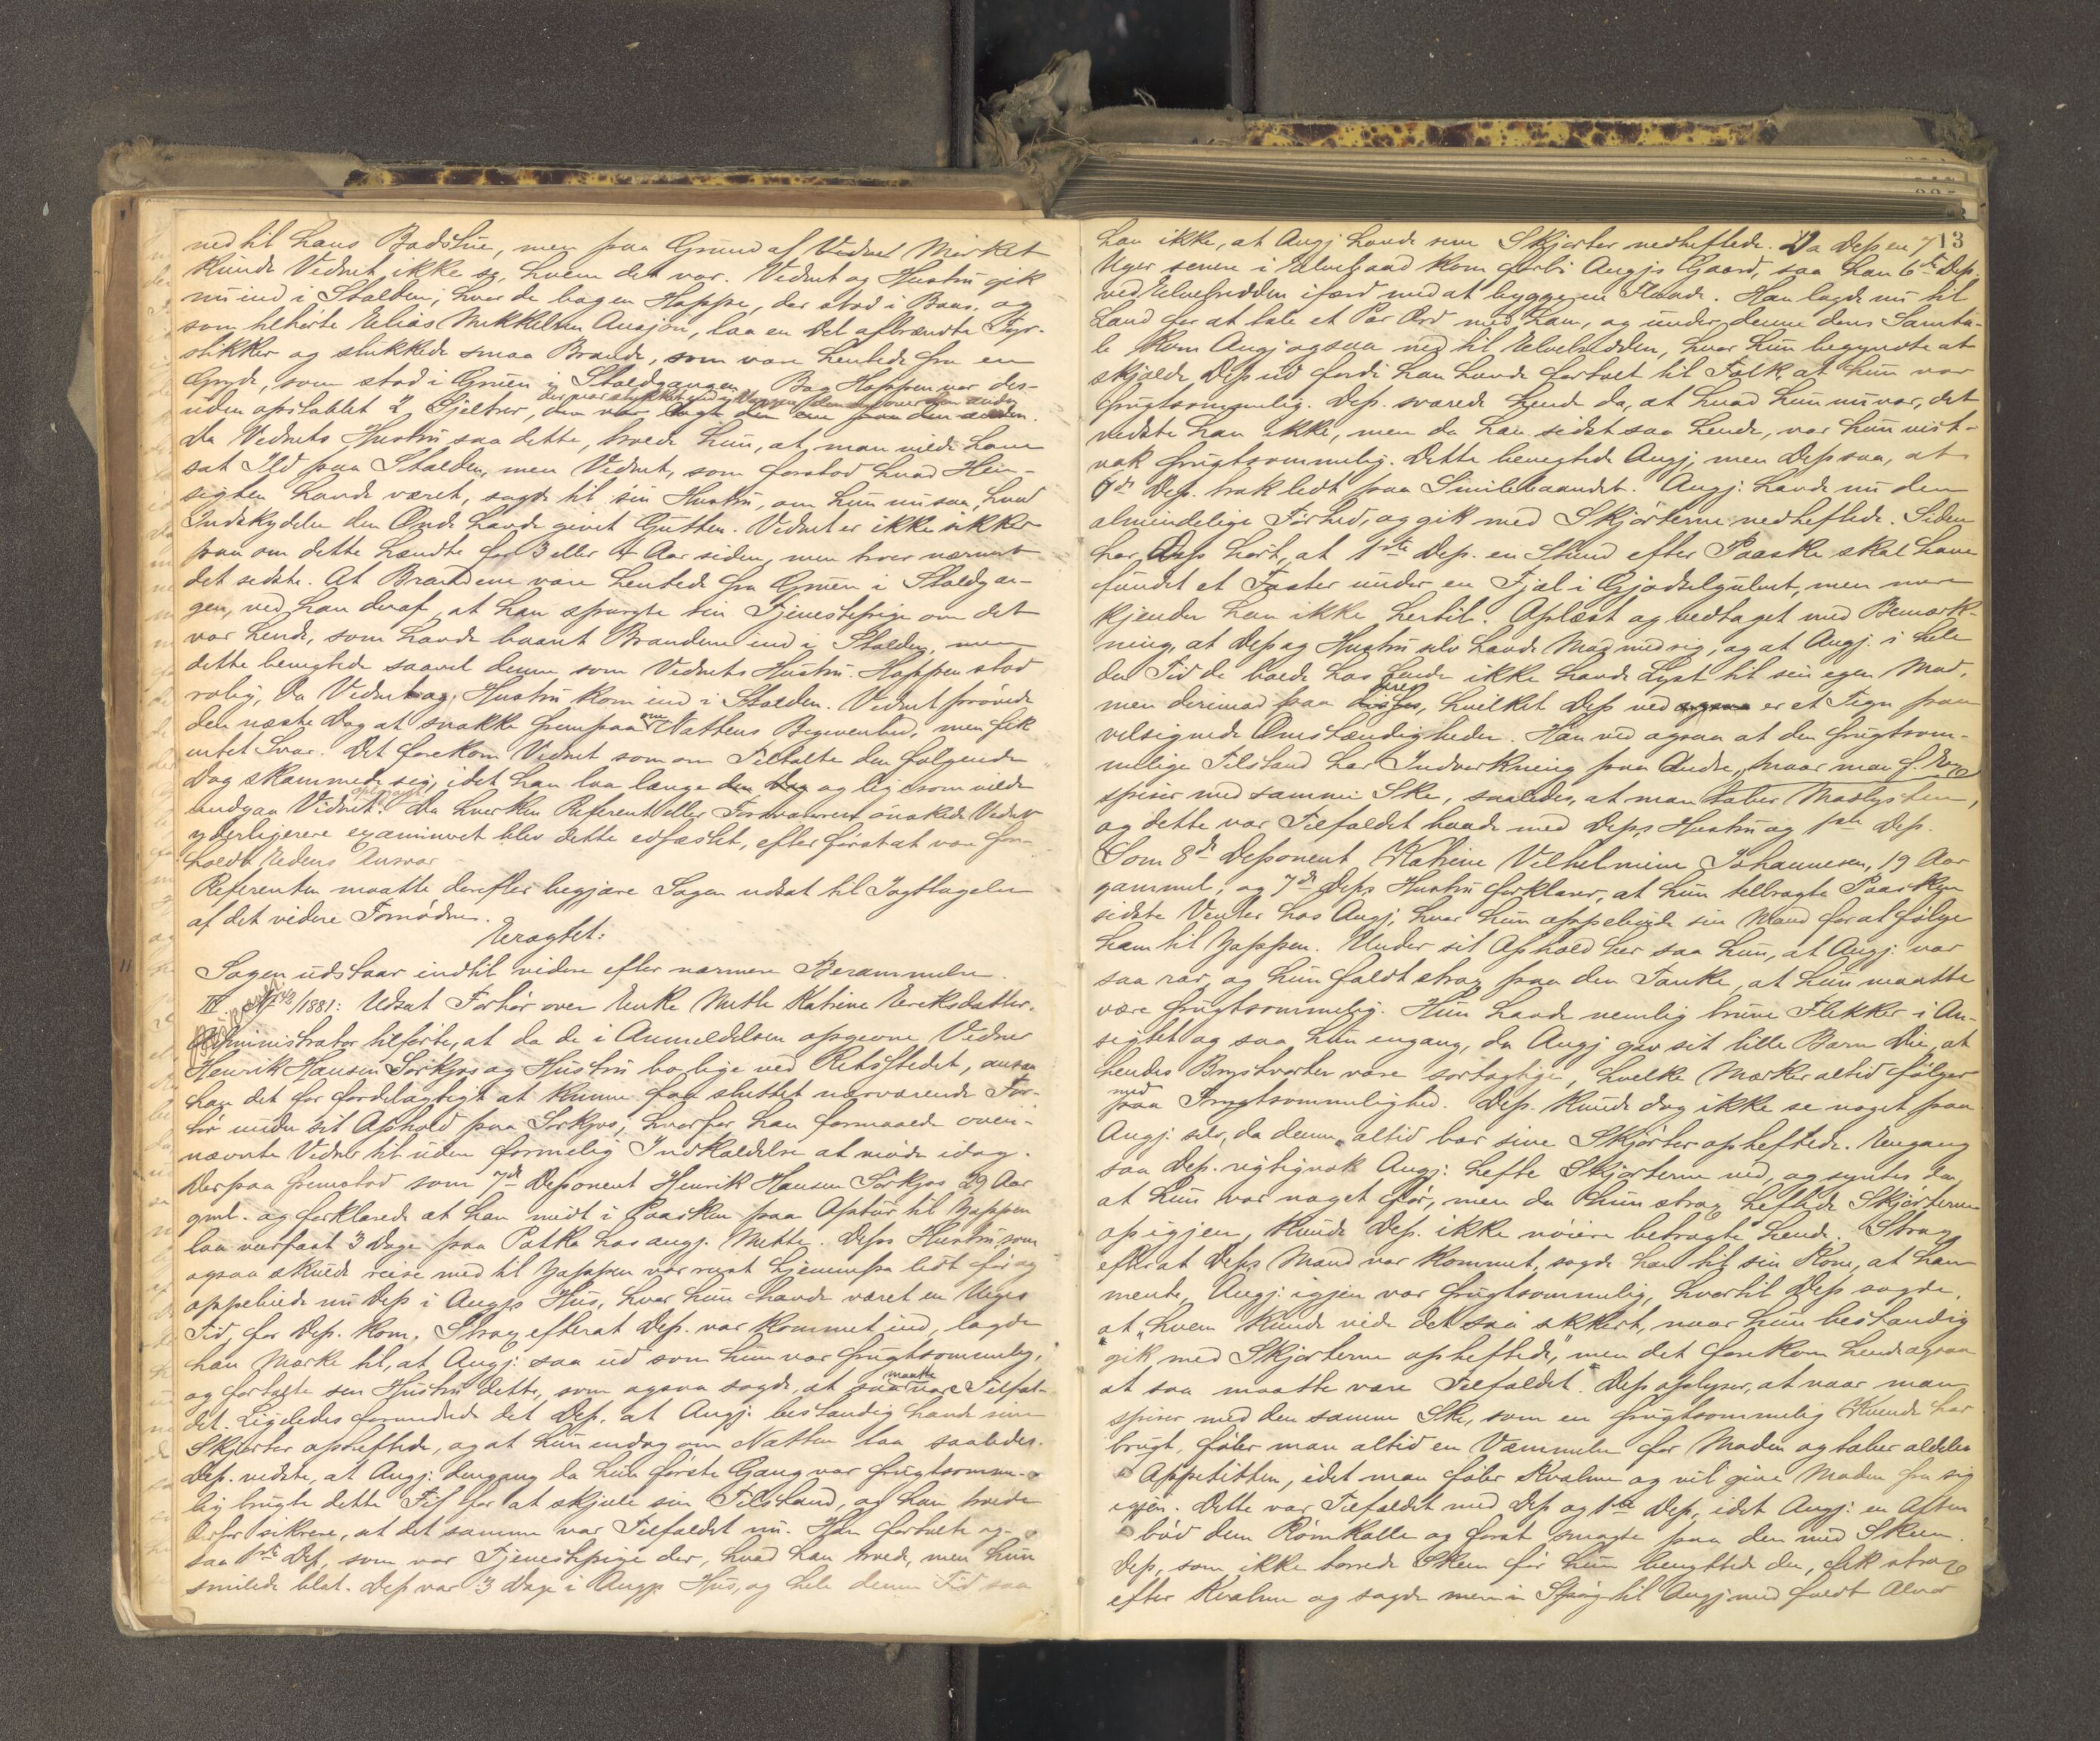 ned til hans Badstue, men paa Grund af Vidnet Mørket
kunde Vidnet ikke se, hvem det var. Vidnet og Hustru gik
nu ind i Stalden, hvor de bag en Hoppe, der stod i Baas, og
som tilhørte Elias Mikkelsen, laa en Del afbrændte Fyr-
stikker og slukkede smaa Brande, som vare hentede fra en
Gryde, som stod i Gruen i Staldgangen. Bag Hoppen var des-
uden opstablet 2 Gjeltrer, den var lagt den ene paa den anden.
Da Vidnets Hustru saa dette, troede hun, at man vilde have
sat Ild paa Stalden, men Vidnet, som forstod hvad Hen-
sigten havde været, sagde til sin Hustru, om hun nu saa, hvad
Indskydelse den Onde havde givet Gutten. Vidnet er ikke sikker
paa om dette hændte for 3 eller 4 Aar siden, men tror nærmest
det sidste. At Brandene vare hentede fra Gruen i Staldgan-
gen, ved han deraf, at han spurgte sin Tjenestepige om det
var hende, som havde baaret Brandene ind i Stalden, men
dette benegtede saavel denne, som Vidnets Hustru. Hoppen stod
rolig, da Vidnet og Hustru kom ind i Stalden. Vidnet prøvede
den næste Dag at snakke frempaa om Nattens Begivenhed, men fik
intet Svar. Det forekom Vidnet som om Tiltalte den følgende
Dag skammede sig, idet han laa længe den Dag og ligesom vilde
undgaa Vidnet. Oplæst. Da hverken Referent eller Defensor ønskede Vidnet
yderligere examineret blev dette edfæstet, efter først at være fore-
holdt Edens Ansvar
Referenten maatte derefter begjære Sagen udsat til Iagttagelse
af det videre Fornødne.
Eragtet:
Sagen udstaar indtil videre efter nærmere Berammelse.
1881: Udsat Forhør over Enke Mette Katrine Eriksdatter.
Administrator tilførte, at da de i Anmeldelsen opgivne Vidner
Henrik Hansen Sørkjos og Hustru bo lige ved Retsstedet, ansaa
han det for fordelagtigt at kunne faa sluttet nærværende For-
hør under sit Ophold paa Sørkjos, hvorfor han formaaede oven-
nævnte Vidner til uden formelig Indkaldelse at møde idag.
Derpaa fremstod som 7de Deponent Henrik Hansen Sørkjos 29 Aar
gml. og forklarede at han midt i Paasken paa Optur til Jappen
laa veirfast 3 Dage paa Polka hos angj. Mette. Deps Hustru som
ogsaa skulde reise med til Jappen var reist hjemmefra lidt før og
oppebiede nu Dep i Angjs Hus, hvor hun havde været en Uges
Tid, før Dep. kom. Strax efterat Dep. var kommet ind, lagde
han Mærke til, at Angj: saa ud som hun var frugtsommelig,
og fortalte sin Hustru dette, som ogsaa sagde, at saa maatte være Tilfæl-
det. Ligeledes forundrede det Dep. at Angj: bestandig havde sine
Skjørter opheftede, og at hun endog om Natten laa saaledes.
Dep. vidste, at Angj: dengang da hun første Gang var frugtsomme-
lig brugte dette Fif for at skjule sin Tilstand, og han troede
derfor sikrere, at det samme var Tilfældet nu. Han fortalte og-
saa 1ste Dep, som var Tjenestepige der, hvad han troede, men hun
smilede blot. Dep var 3 Dage i Angjs Hus, og hele denne Tid saa
13
han ikke, at Angj havde sine Skjørter nedheftede. Da Dep en 7
Uger senere i Elvebaad kom forbi Angjs Gaard, saa han 6te Dep.
ved Elvebredden ifærd med at bygge en Flaade. Han lagde nu til
Land for at tale et Par Ord med ham, og under denne deres Samta-
le kom Angj ogsaa ned til Elvebredden, hvor hun begyndte at
skjælde Dep ud fordi han havde fortalt til Folk at hun var
frugtsommelig. Dep. svarede hende da, at hvad hun nu var, det
vidste han ikke, men da han sidst saa hende, var hun vist-
nok frugtsommelig. Dette benegtede Angj, men Dep saa, at
6te Dep. trak lidt paa Smilebaandet. Angj: havde nu den
almindelige Førhed, og gik med Skjørterne nedheftede. Siden
har Dep hørt, at 1ste Dep. en Stund efter Paaske skal have
fundet et Foster under en Fjæl i Gjødselgulvet, men mere
kjender han ikke hertil. Oplæst og vedtaget med Bemærk-
ning, at Dep og Hustru selv havde Mad med sig, og at Angj. i hele
den Tid de boede hos hende ikke havde Lyst til sin egen Mad,
men derimod paa deres, hvilket Dep ved er et Tegn paa
velsignede Omstændigheder. Han ved ogsaa at den frugtsom-
melige Tilstand har Indvirkning paa Andre, naar man f. Ex
spiser med samme Ske, saaledes, at man taber Madlysten,
og dette var Tilfældet baade med Deps Hustru og 1ste Dep.
Som 8de Deponent Katrine Vilhelmine Johannesen, 19 Aar
gammel, og 7de Deps Hustru forklarer, at hun tilbragte Paasken
sidste Vinter hos Angj, hvor hun oppebiede sin Mand for at følge
ham til Jappen. Under sit Ophold her saa hun, at Angj: var
saa rar, og hun faldt strax paa den Tanke, at hun maatte
være frugtsommelig. Hun havde nemlig brune Flekker i An-
sigtet og saa hun engang, da Angj gav sit lille Barn Die, at
hendes Brystvorter vare sortagtige, hvilke Mærker altid følger
med paa Frugtsommelighed. Dep. kunde dog ikke se noget paa
Angj: selv, da denne altid bar sine Skjørter opheftede. Engang
saa Dep. rigtignok Angj: hefte Skjørterne ned, og syntes da
at hun var noget før, men da hun strax heftede Skjørterne
op igjen, kunde Dep. ikke nøiere betragte hende. Strax
efterat Deps Mand var kommet, sagde han til sin Kone, at han
mente Angj: igjen var frugtsommelig, hvortil Dep sagde,
at "hvem kunde vide det saa sikkert, naar hun bestandig
"gik med Skjørterne opheftede," men det forekom hende ogsaa
at saa maatte være Tilfældet. Dep oplyser, at naar man
spiser med den samme Ske, som en frugtsommelig Kvinde har
brugt, føler man altid en Væmmelse for Maden og taber aldeles
Appetitten, idet man føler Kvalme og vil give Maden fra sig
igjen. Dette var Tilfældet med Dep og 1ste Dep, idet Angj: en Aften
bød dem Rømkolle og først smagte paa den med Skeen.
Dep, som ikke tørrede Skeen før hun benyttede den, fik strax
efter Kvalme og sagde men i Spøg til Angj med fuldt Alvor